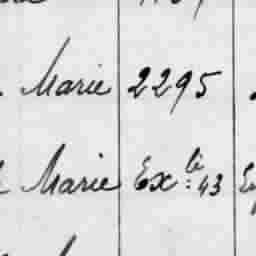 Marie 2295
Marie Ex.li: 43